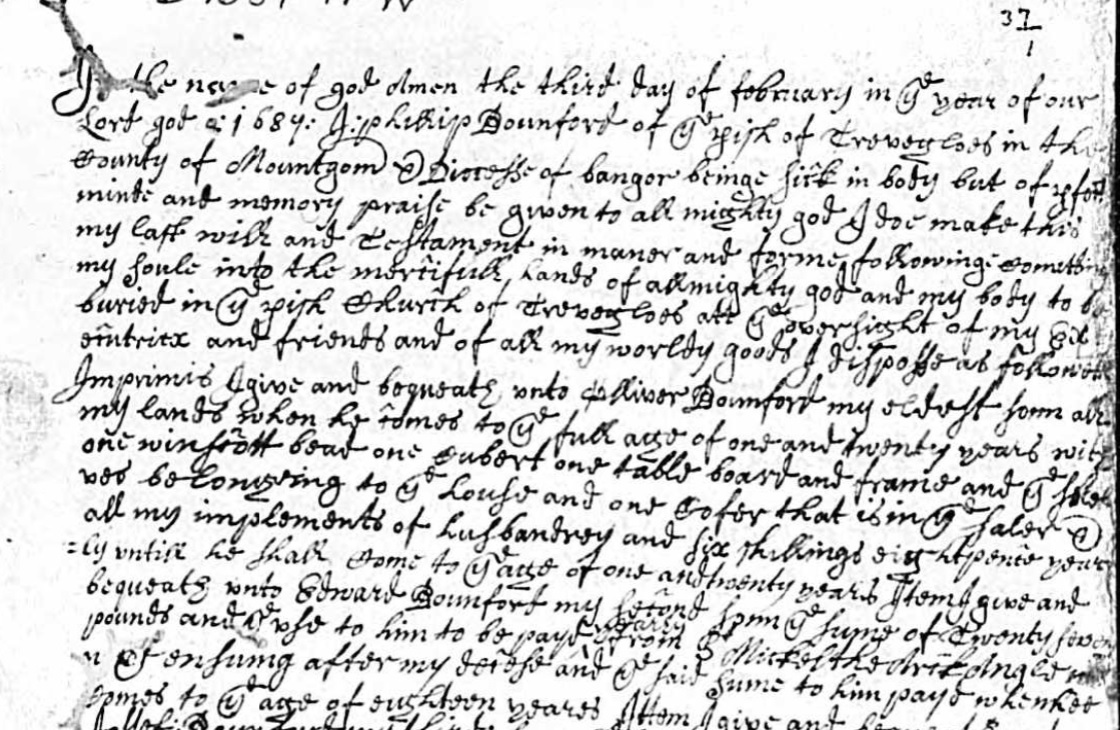 37
1
In the name of god Amen the third day of february in ye year of our
Lord god 1687: I: phillip Dounford of ye pish of Trevegloes in the
County of Mountgom & Diocesse of bangor beinge sick in body but of pfect
minde and memory praise be given to all mighty god I doe make this
my last will and Testament in maner and forme followinge Comitting
my soule into the mercifull hands of allmighty god and my body to be
buried in ye pish Church of Trevegloes att ye oversight of my Ex
ecutricx and friends and of all my worldy goods I dispose as followeth
Imprimis I give and bequeath unto Olliver Dounford my eldest sonn all
my lands when he comes to ye full age of one and twenty years with
one winscott bead one Cubert one table board and frame and ye shel
ves belongeing to ye house and one Cofer that is in ye saler &
all my implements of husbandrey and six shillings eightpence year
=ly untill he shall Come to ye age of one and twenty years Item I give and
bequeath unto Edward Dounford my second sonn ye sume of Twenty seven
pounds and ye use to him to be payd yearly from St Mickel the Arck Angle
ensuing after my decese and ye said sume to him payd when hee
comes to ye age of eughteen yeares Ittem I give and